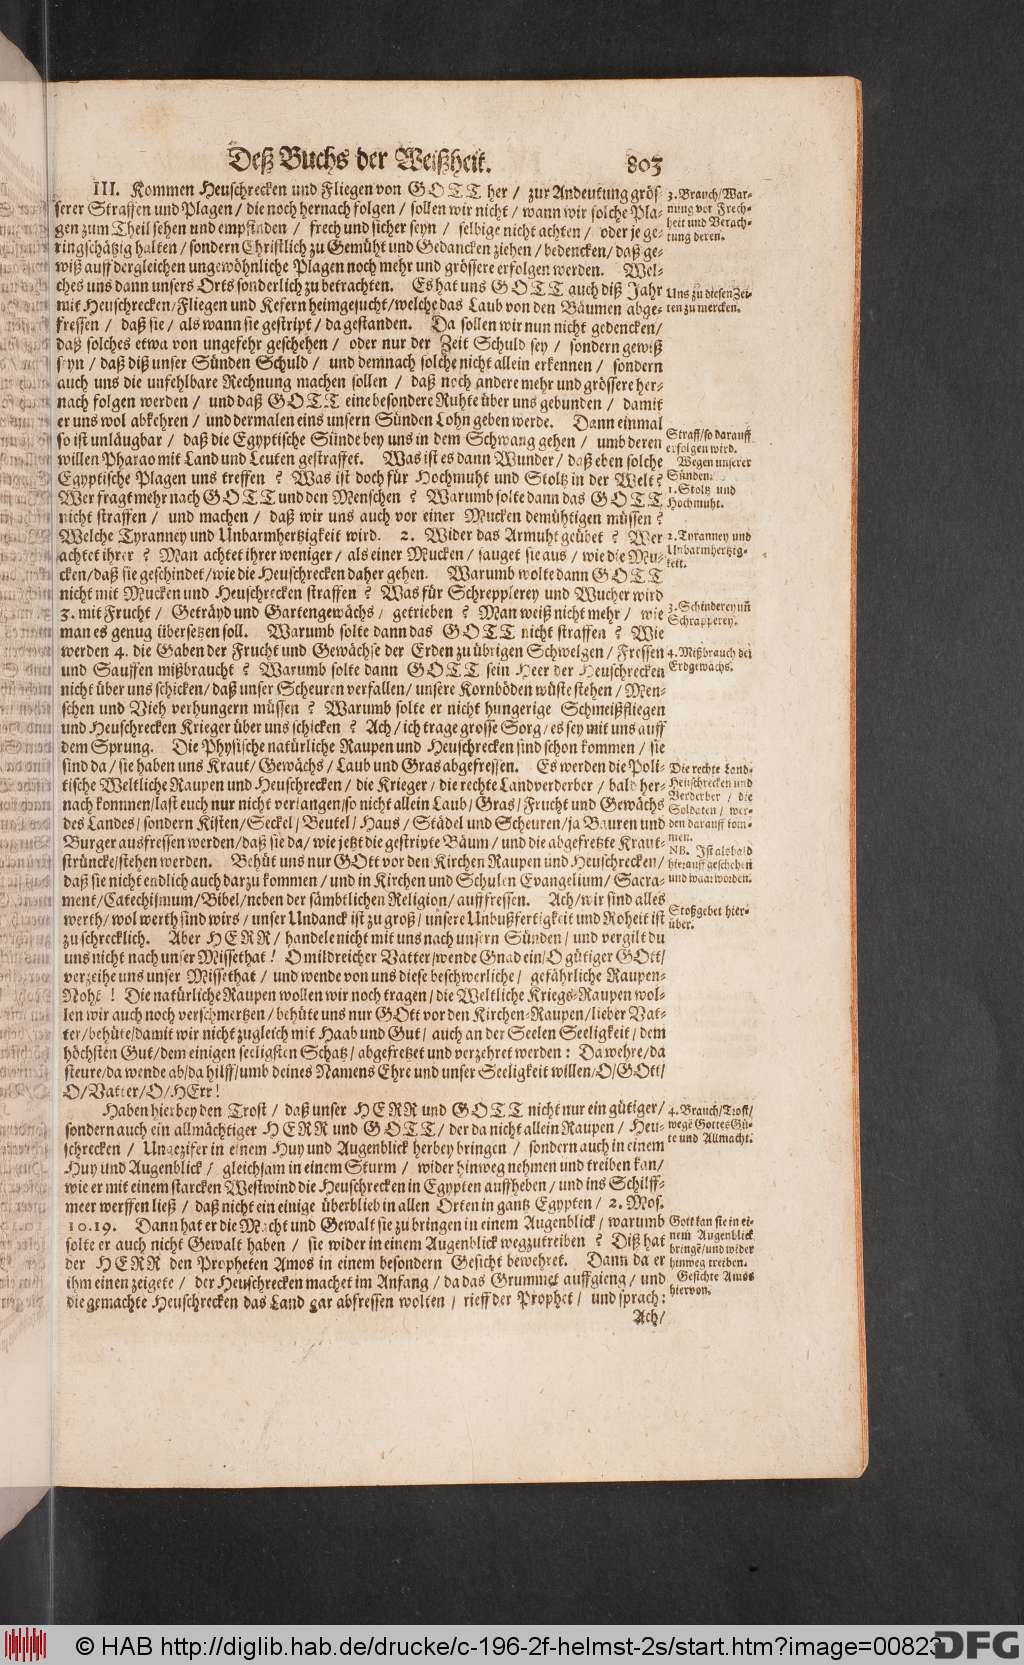 Deß Buchs der Weißheit. 803
III. Kommen Heuschrecken und Fliegen von GOTT her / zur Andeutung grös-
serer Straffen und Plagen / die noch hernach folgen / sollen wir nicht / wann wir solche Pla-
gen zum Theil sehen und empfinden / frech und sicher seyn / selbige nicht achten / oder je ge-
ringschätzig halten / sondern Christlich zu Gemüht und Gedancken ziehen / bedencken / daß ge-
wiß auff dergleichen ungewöhnliche Plagen noch mehr und grössere erfolgen werden. Wel-
ches uns dann unsers Orts sonderlich zu betrachten. Es hat uns GOTT auch diß Jahr
mit Heuschrecken / Fliegen und Kefern heimgesucht / welche das Laub von den Bäumen abge-
fressen / daß sie / als wann sie gestript / da gestanden. Da sollen wir nun nicht gedencken /
daß solches etwa von ungefehr geschehen / oder nur der Zeit Schuld sey / sondern gewiß
seyn / daß diß unser Sünden Schuld / und demnach solche nicht allein erkennen / sondern
auch uns die unfehlbare Rechnung machen sollen / daß noch andere mehr und grössere her-
nach folgen werden / und daß GOTT eine besondere Ruhte über uns gebunden / damit
er uns wol abkehren / und dermalen eins unsern Sünden Lohn geben werde. Dann einmal
so ist unläugbar / daß die Egyptische Sünde bey uns in dem Schwang gehen / umb deren
willen Pharao mit Land und Leuten gestraffet. Was ist es dann Wunder / daß eben solche
Egyptische Plagen uns treffen ? Was ist doch für Hochmuht und Stoltz in der Welt ?
Wer fragt mehr nach GOTT und den Menschen ? Warumb solte dann das GOTT
nicht straffen / und machen / daß wir uns auch vor einer Mucken demühtigen müssen ?
Welche Tyranney und Unbarmhertzigkeit wird. 2. Wider das Armuht geübet ? Wer
achtet ihrer ? Man achtet ihrer weniger / als einer Mucken / sauget sie aus / wie die Mu-
cken / daß sie geschindet / wie die Heuschrecken daher gehen. Warumb wolte dann GOTT
nicht mit Mucken und Heuschrecken straffen ? Was für Schrepplerey und Wucher wird
3. mit Frucht / Geträyd und Gartengewächs / getrieben ? Man weiß nicht mehr / wie
man es genug übersetzen soll. Warumb solte dann das GOTT nicht straffen ? Wie
werden 4. die Gaben der Frucht und Gewächse der Erden zu übrigen Schwelgen / Fressen
und Sauffen mißbraucht ? Warumb solte dann GOTT sein Heer der Heuschrecken
nicht über uns schicken / daß unser Scheuren verfallen / unsere Kornböden wüste stehen / Men-
schen und Vieh verhungern müssen ? Warumb solte er nicht hungerige Schmeißfliegen
und Heuschrecken Krieger über uns schicken ? Ach / ich trage grosse Sorg / es sey mit uns auff
dem Sprung. Die Physische natürliche Raupen und Heuschrecken sind schon kommen / sie
sind da / sie haben uns Kraut / Gewächs / Laub und Gras abgefressen. Es werden die Poli-
tische Weltliche Raupen und Heuschrecken / die Krieger / die rechte Landverderber / bald her-
nach kommen / last euch nur nicht verlangen / so nicht allein Laub / Gras / Frucht und Gewächs
des Landes / sondern Kisten / Seckel / Beutel / Haus / Städel und Scheuren / ja Bauren und
Burger ausfressen werden / daß sie da / wie jetzt die gestripte Bäum / und die abgefretzte Kraut-
strüncke / stehen werden. Behüt uns nur GOtt vor den Kirchen Raupen und Heuschrecken /
daß sie nicht endlich auch darzu kommen / und in Kirchen und Schulen Evangelium / Sacra-
ment / Catechismum / Bibel / neben der sämbtlichen Religion / auffressen. Ach / wir sind alles
werth / wol werth sind wirs / unser Undanck ist zu groß / unsere Unbußfertigkeit und Roheit ist
zu schrecklich. Aber HERR / handele nicht mit uns nach unsern Sünden / und vergilt du
uns nicht nach unser Missethat ! O mildreicher Vatter / wende Gnad ein / O gütiger GOtt /
verzeihe uns unser Missethat / und wende von uns diese beschwerliche / gefährliche Raupen-
Noht ! Die natürliche Raupen wollen wir noch tragen / die Weltliche Kriegs-Raupen wol-
len wir auch noch verschmertzen / behüte uns nur GOtt vor den Kirchen-Raupen / lieber Vat-
ter / behüte / damit wir nicht zugleich mit Haab und Gut / auch an der Seelen Seeligkeit / dem
höchsten Gut / dem einigen seeligsten Schatz / abgefretzet und verzehret werden : Da wehre / da
steure / da wende ab / da hilff / umb deines Namens Ehre und unser Seeligkeit willen / O / GOtt /
O / Vatter / O / HErr !
Haben hierbey den Trost / daß unser HERR und GOTT nicht nur ein gütiger /
sondern auch ein allmächtiger HERR und GOTT / der da nicht allein Raupen / Heu-
schrecken / Ungezifer in einem Huy und Augenblick herbey bringen / sondern auch in einem
Huy und Augenblick / gleichsam in einem Sturm / wider hinweg nehmen und treiben kan /
wie er mit einem starcken Westwind die Heuschrecken in Egypten auffheben / und ins Schilff-
meer werffen ließ / daß nicht ein einige überblieb in allen Orten in gantz Egypten / 2. Mos.
10.19. Dann hat er die Macht und Gewalt sie zu bringen in einem Augenblick / warumb
solte er auch nicht Gewalt haben / sie wider in einem Augenblick wegzutreiben ? Diß hat
der HERR den Propheten Amos in einem besondern Gesicht bewehret. Dann da er
ihm einen zeigete / der Heuschrecken machet im Anfang / da das Grummet auffgieng / und
die gemachte Heuschrecken das Land gar abfressen wolten / rieff der Prophet / und sprach:
Ach /
3. Brauch / War-
nung vor Frech-
heit und Verach-
tung deren.
Uns zu diesen Zei-
ten zu mercken.
Straff / so darauff
erfolgen wird.
Wegen unserer
Sünden.
1. Stoltz und
Hochmuht.
2. Tyranney und
Unbarmhertzig-
keit.
3. Schinderey uñ
Schrapperey.
4. Mißbrauch der
Erdgewächs.
Die rechte Land-
Heuschrecken und
Verderber / die
Soldaten / wer-
den darauff kom-
men.
NB. Ist alsbald
hierauff geschehen
und waar worden.
Stoßgebet hier-
über.
4. Brauch / Trost /
wegẽ Gottes Gü-
te und Allmacht.
Gott kan sie in ei-
nem Augenblick
bringẽ / und wider
hinweg treiben.
Gesichte Amos
hiervon.
© HAB http://diglib.hab.de/drucke/c-196-2f-helmst-2s/start.htm?image=00823
DFG